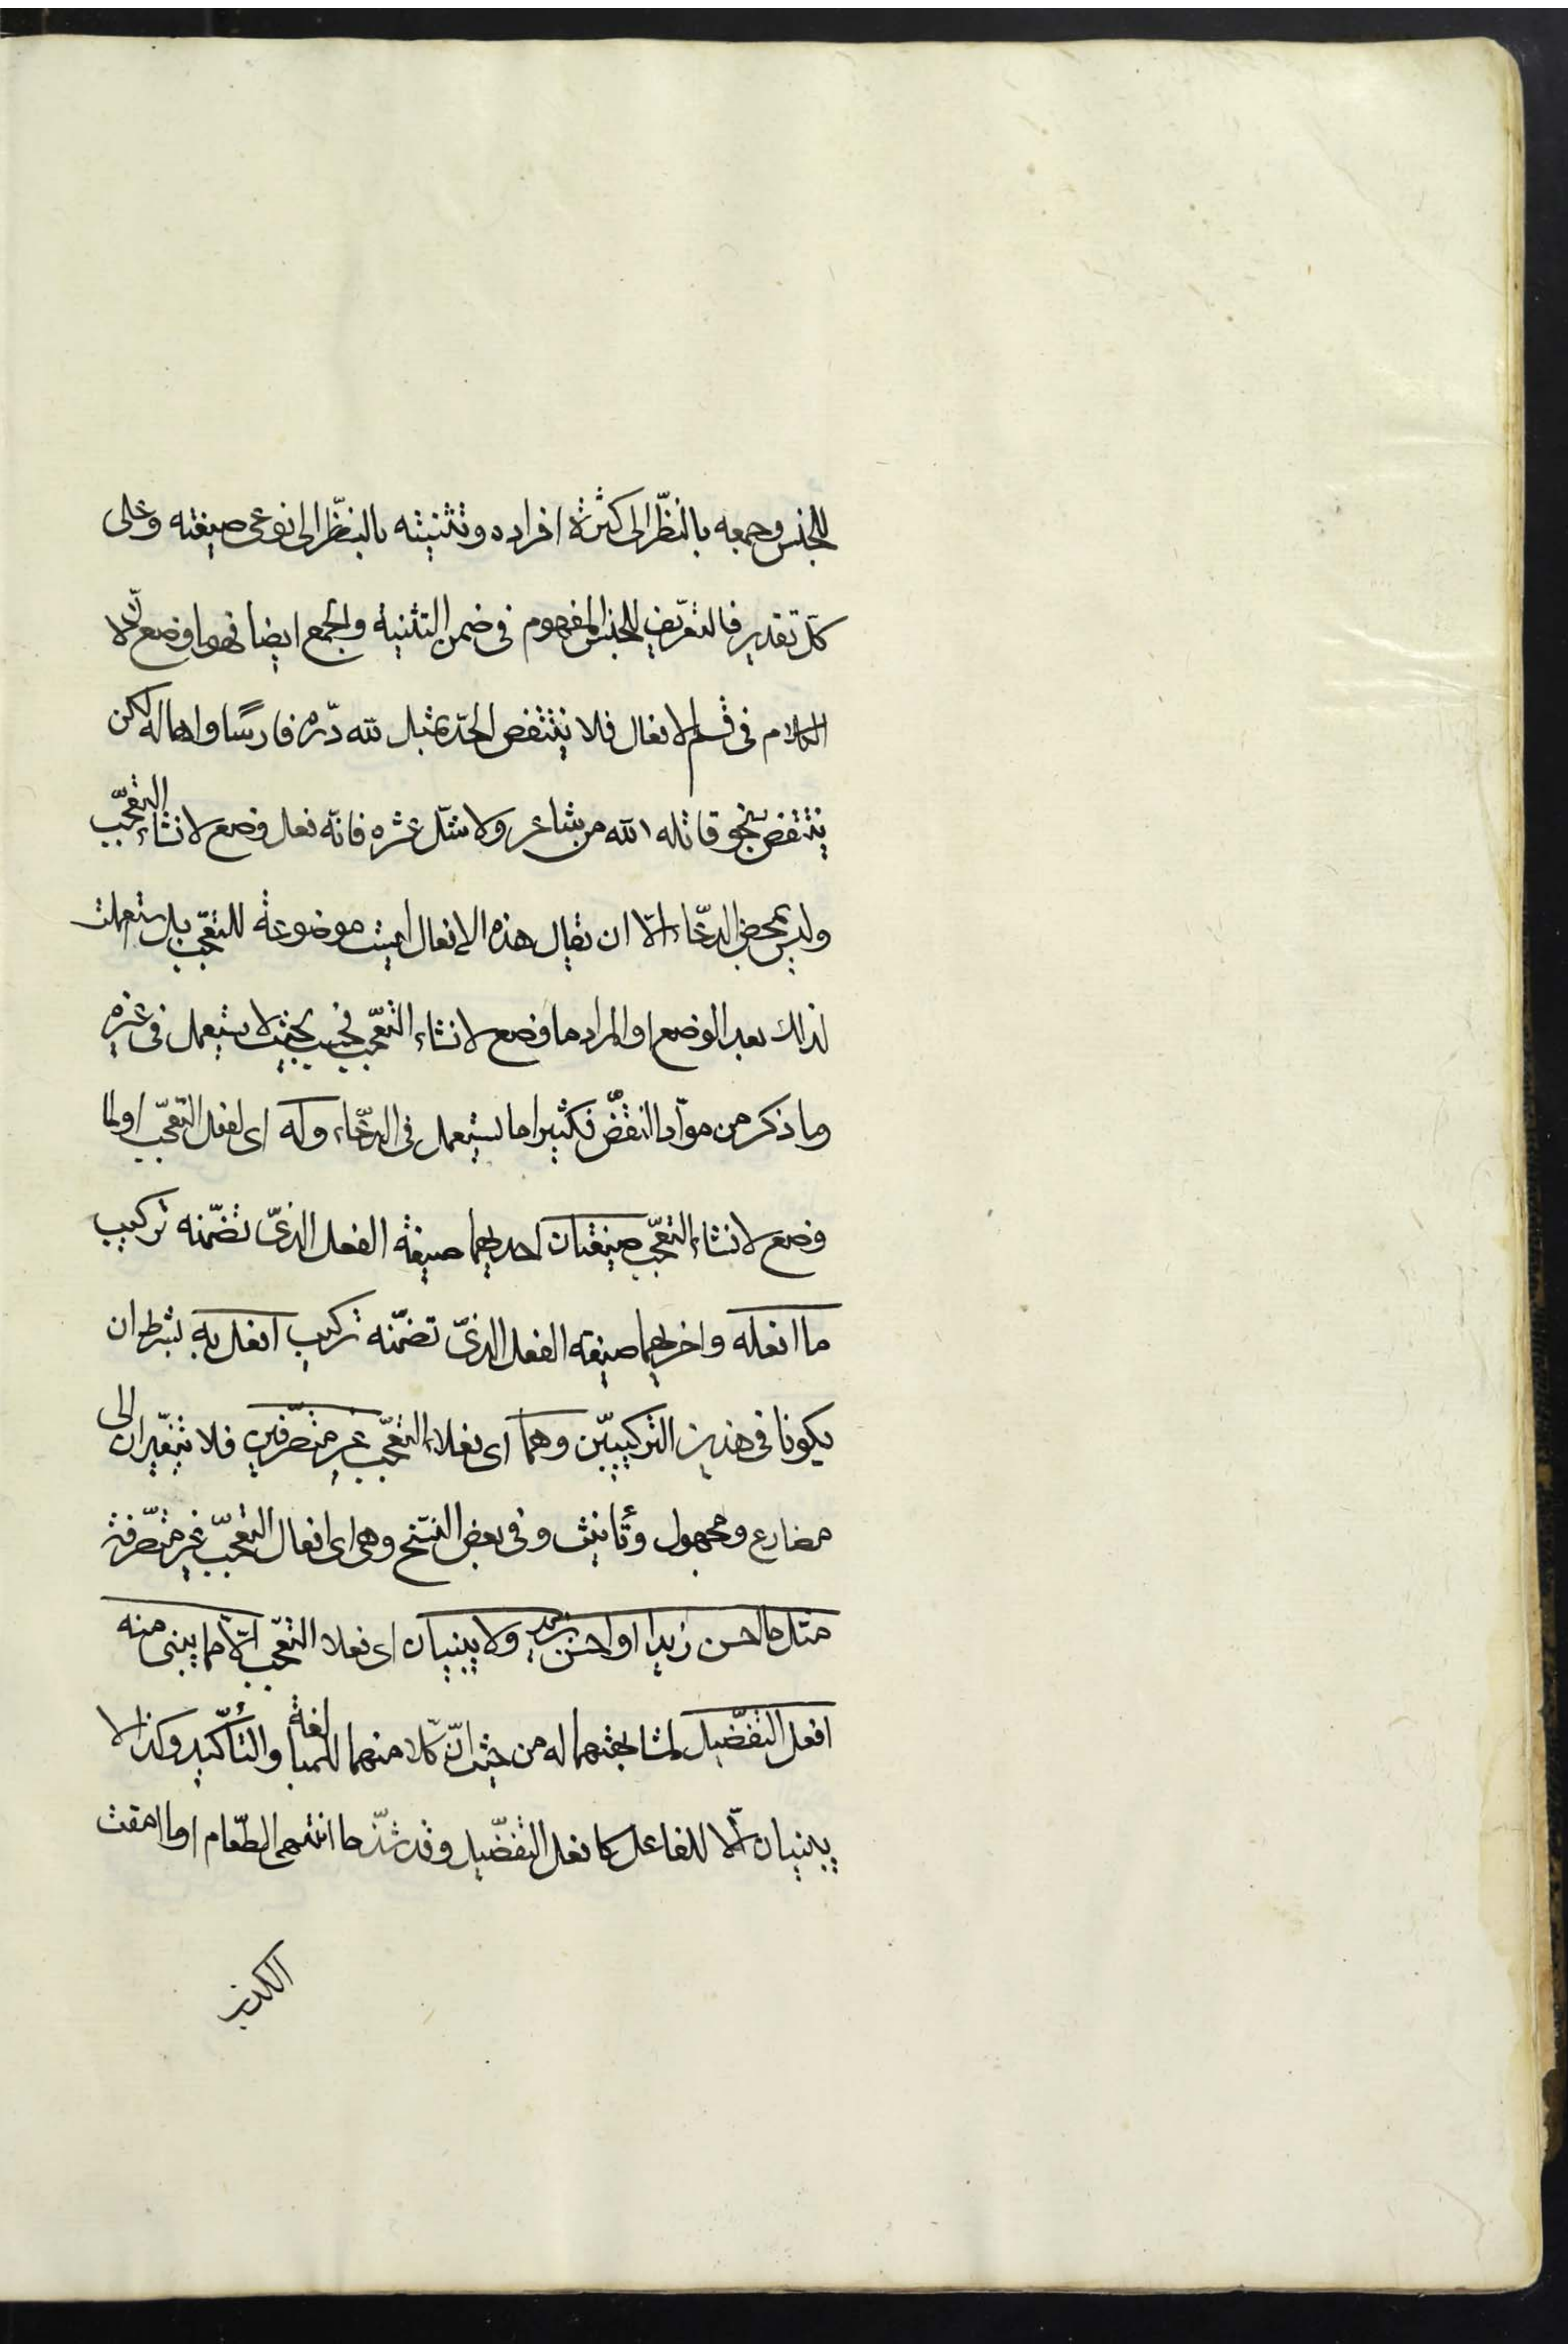 للجنس وجمعه بالنظّر الى كثرة افراده وتثنيته بالنظّر الى نوعى صيغته وعلى
كلّ تقدير فالتعّريف للجنس المفهوم فى ضمن التثنية والجمع ايضا فهو ما وضع لانّ الا
الكلام فى قسم الافعال فلا ينتقض الحدّ بمثل لله درّه فارسًا واها له لكن
ينتقض بنحو قاتله الله من شاعر ولا شلّ عشره فانّه فعل وضع لانشاء التعّجب
وليس بمحض الدعّاء الّا ان يقال هذه الافعال ليست موضوعة للتعّجب بل استعملت
لذلك بعد الوضع او المراد ما وضع لانشاء التعّجب فحسب بحيث لا يستعمل فى غيره
وما ذكر من موادّ النقّض فكثيرا ما يستعمل فى الدعّاء وله اى لفعل التعّجب او لما
وضع لانشاء التعّجب صيغتان احديهما صيغة الفعل الذىّ تضّمنه تركيب
ما افعله واخريهما صيغه الفعل الذىّ تضّمنه تركيب افعل به بشرط ان
يكونا فى هذين التركيبيّن وهما اى فعلاء التعّجب غير متصّرفين فلا يتغيّران الى
مضارع ومجهول وتأنيث وفى بعض النسّخ وهى اى افعال التعّجب غير متصّرفة
مثل ما احسن زيدا او احسن بزيد ولا يبنيان اى فعلا التعّجب الّا مما يبنى منه
افعل التفضّيل لمشابهتهما له من حيث انّ كلّا منهما للمبالغة والتأكّيد وكذا لا
يبنيان الّا للفاعل كافعل التفضّيل وقد شذّ ما اشهى الطعّام او ما امقت
الكذب